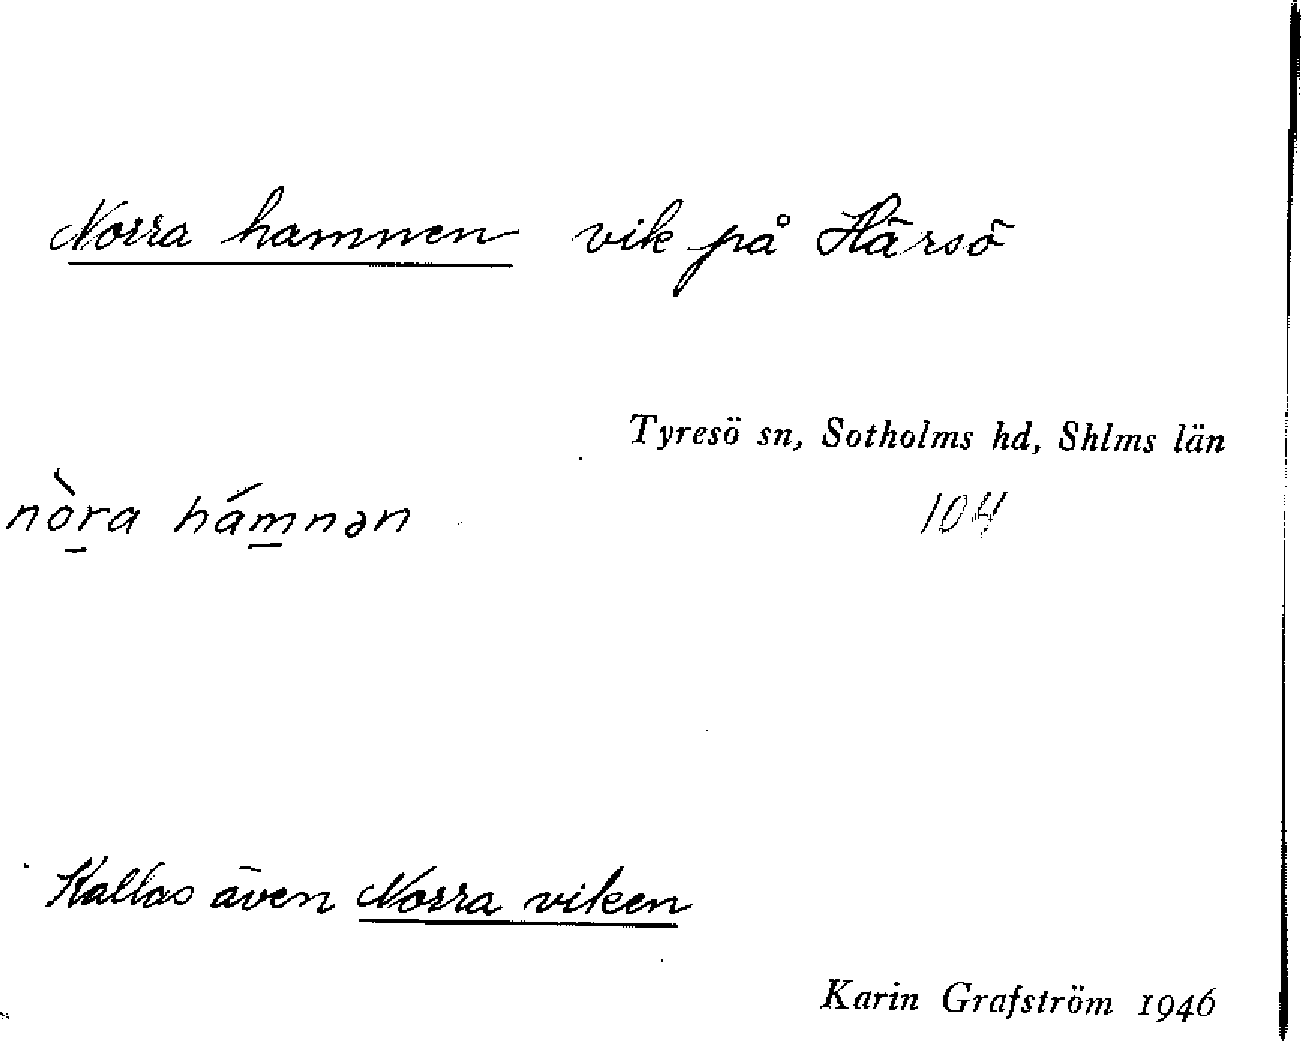 Norra hamnen vik på Härsö
Tyresö sn, Sotholms hd, Shlms län
nòra hámnən
104
Kallas även Norra viken
Karin Grafström 1946